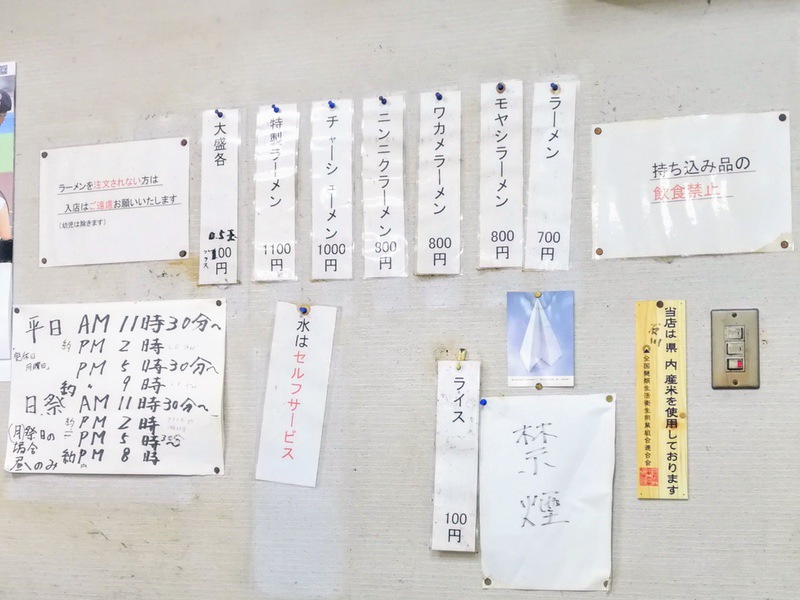 ラーメンを注文されない方は
入店はご遠慮お願いいたします
(幼児は除きます)
大盛各
0.5玉
プラス
100円
特製ラーメン
1100円
チャーシューメン
1000円
ニンニクラーメン
800円
ワカメラーメン
800円
モヤシラーメン
800円
ラーメン
700円
持ち込み品の
飲食禁止
平日 AM 11時30分〜
約 PM 2時
定休日
月曜日。
PM 5時30分〜
約 〃 9時
日祭 AM 11時30分〜
約 PM 2時
PM 5時30分〜
約 PM 8時
(月祭日の
場合
昼のみ
水はセルフサービス
ライス
100円
禁煙
当店は県内産米を使用しております